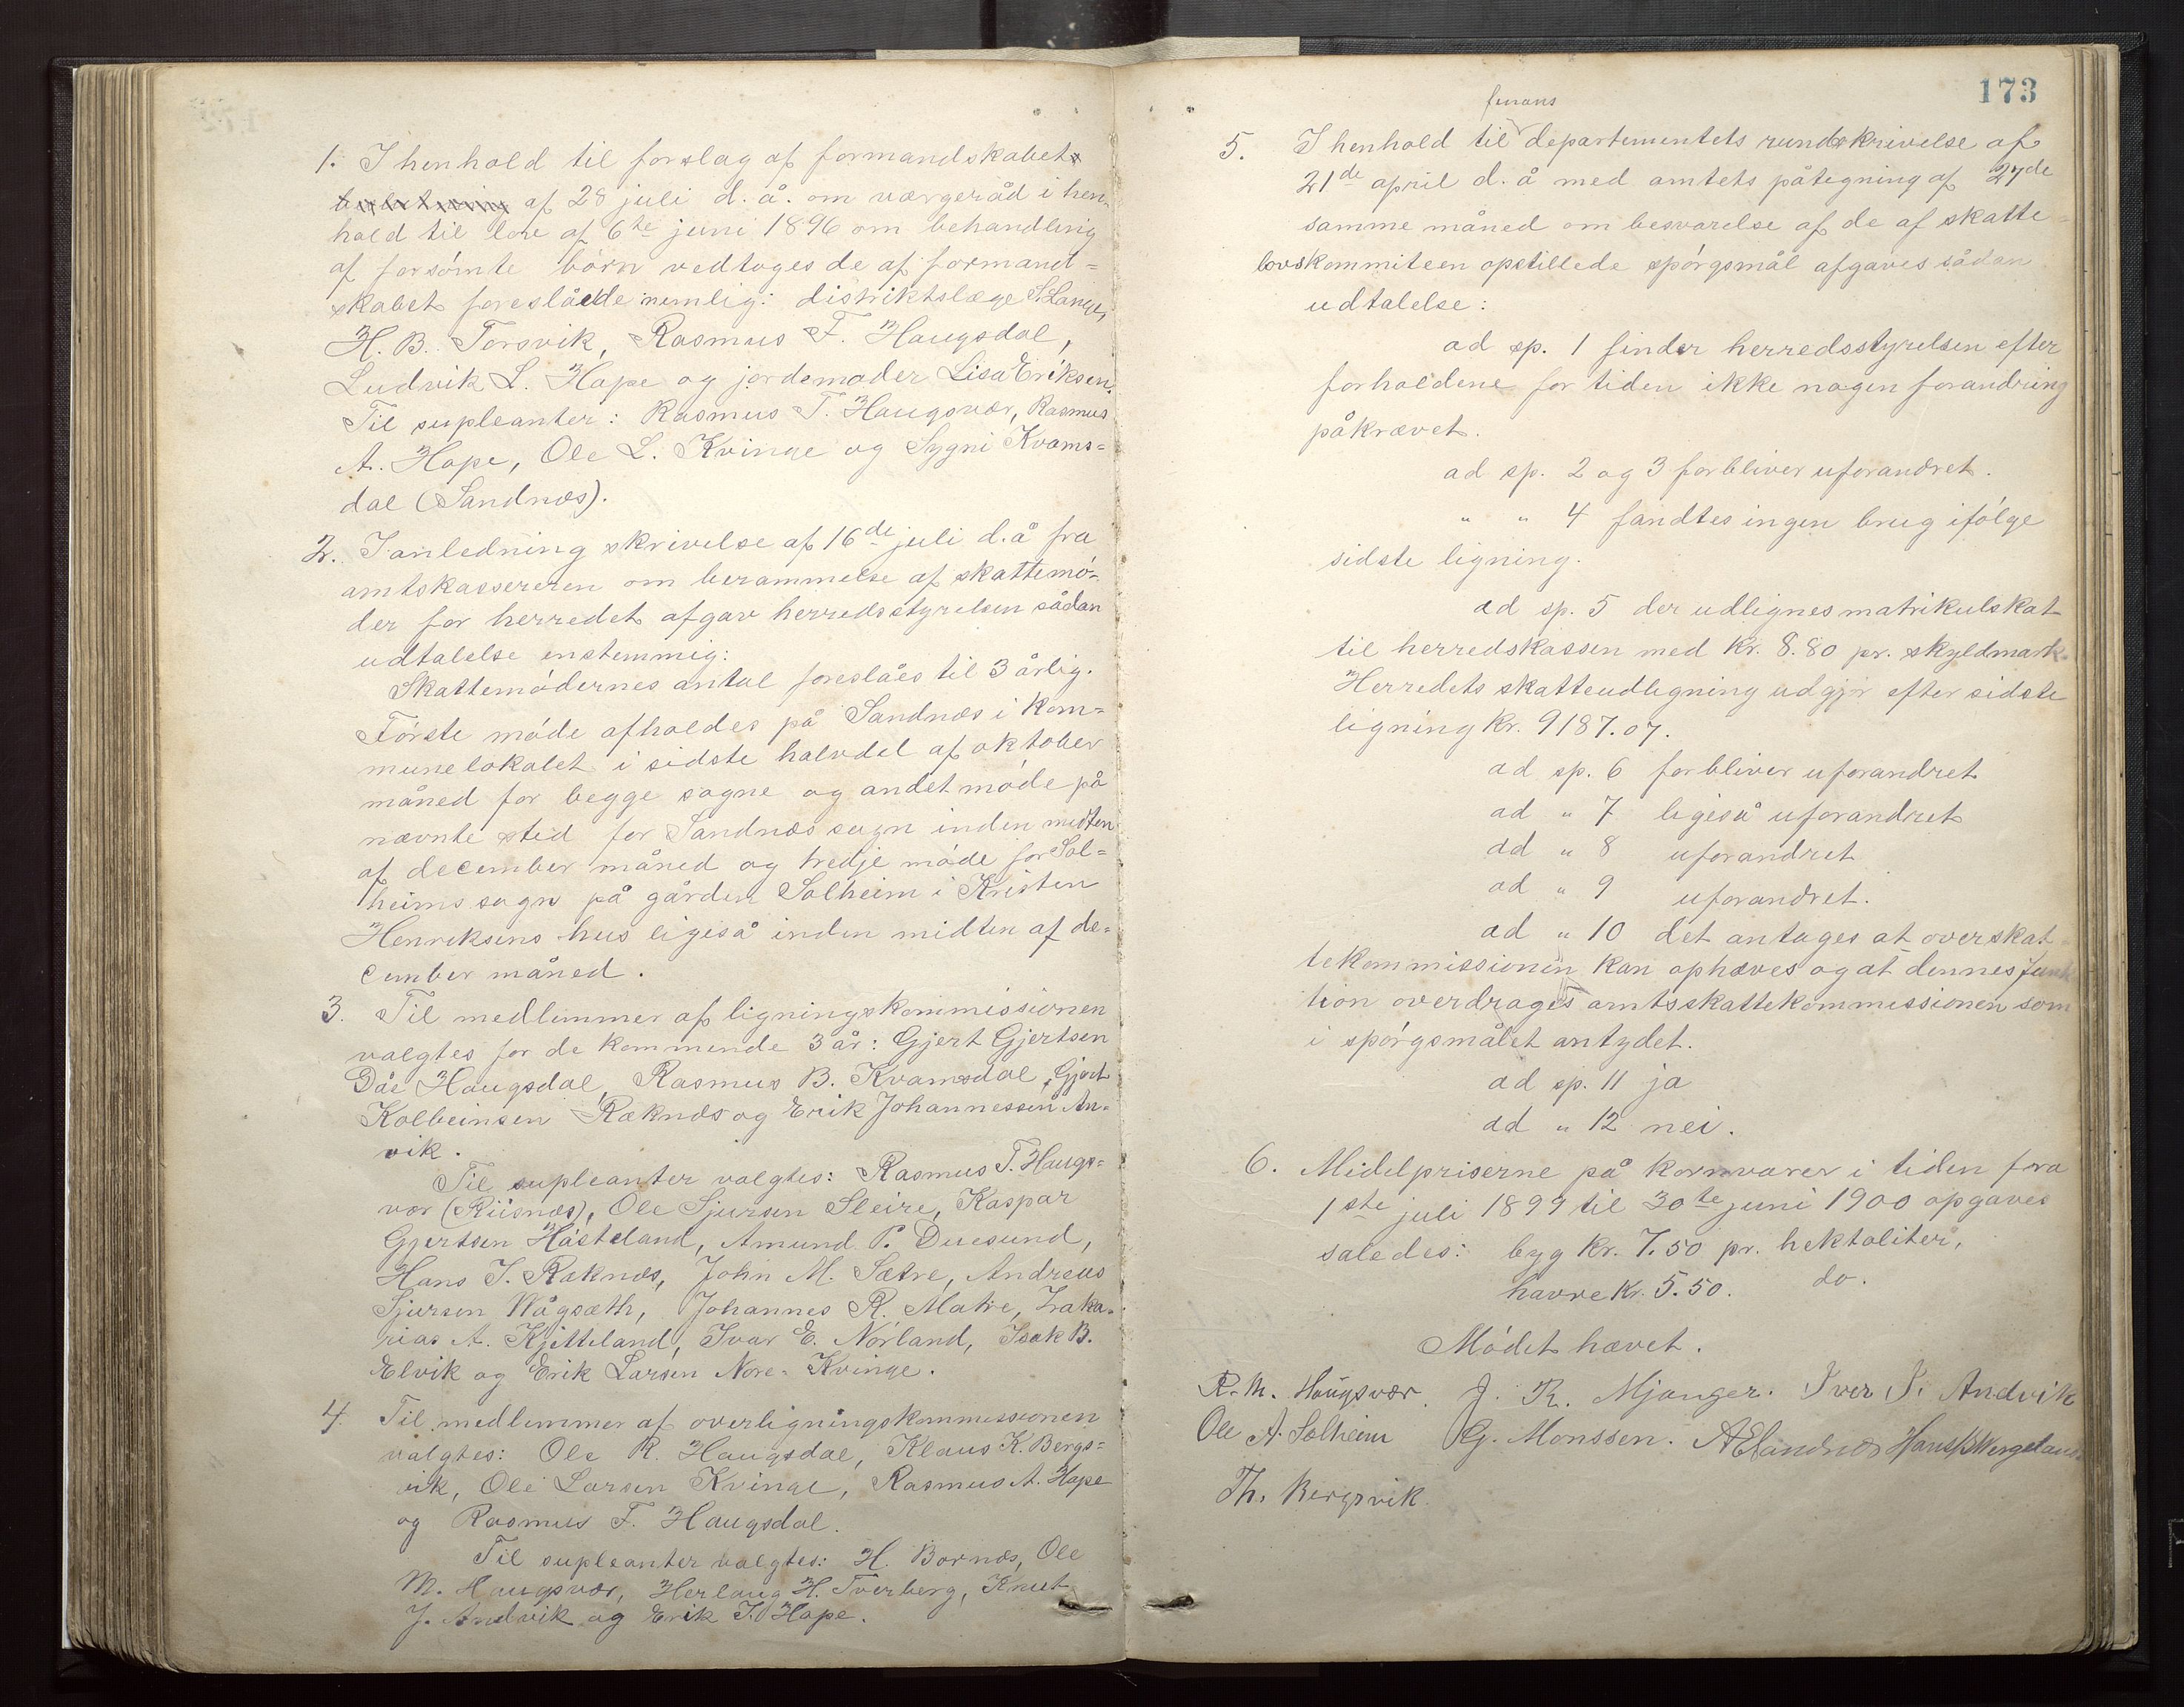 1. I henhold til forslag af formandskabet
af 28 juli d. å. om værgeråd i hen-
hold til lov af 6te juni 1896 om behandling
af forsömte börn vedtoges de af formand=
skabet foreslåede nemlig: distriktslæge S. Lange,
H. B. Torsvik, Rasmus F. Haugsdal,
Ludvik L. Hope og jordemoder Lisa Eriksen.
Til supleanter: Rasmus T. Haugsvær, Rasmus
A. Hope, Ole L. Kvinge og Sygni Kvams=
dal (Sandnæs).
2. I anledning skrivelse af 16de juli d. å fra
amtskassereren om berammelse af skattemö-
der for herredet afgav herredsstyrelsen sådan
udtalelse enstemmig:
Skattemödernes antal foreslåes til 3 årlig.
Förste möde afholdes på Sandnæs i kom=
munelokalet i sidste halvdel af oktober
måned for begge sogne og andet möde på
nævnte sted for Sandnæs sogn inden midten
af december måned og tredje möde for Sol=
heims sogn på gården Solheim i Kristen
Henriksens hus ligeså inden midten af de-
cember måned.
3. Til medlemmer af ligningskommissionen
valgtes for de kommende 3 år: Gjert Gjertsen
Dåe Haugsdal, Rasmus B. Kvamsdal, Gjert
Kolbeinsen Raknæs og Erik Johannessen An-
vik.
Til supleanter valgtes: Rasmus T. Haugs=
vær (Riisnæs), Ole Sjursen Sleire, Kaspar
Ggertsen Hösteland, Amund P. Duesund,
Hans J. Raknæs, John M. Sætre, Andreas
Sjursen Wågsæth, Johannes R. Matre, Zaka-
rias A. Kjetteland, Ivar E. Nörland, Isak B.
Elvik og Erik Larsen Nore-Kvinge.
4. Til medlemmer af overligningskommissionen
valgtes: Ole R. Haugsdal, Klaus K. Bergs=
vik, Ole Larsen Kvinge, Rasmus A. Hope
og Rasmus F. Haugsdal.
Til supleanter valgtes: H. Bornæs, Ole
M. Haugsvær, Herlaug H. Tverberg, Knut
J. Andvik og Erik I. Hope.
173
finans
5. I henhold til departementets rundskrivelse af
21de april d. å med amtets påtegning af 27de
samme måned om besvarelse af de af skatte=
lovskommiteen opstillede spörgsmål afgaves sådan
udtalelse:
ad sp. 1 finder herredsstyrelsen efter
forholdene for tiden ikke nogen forandring
påkrævet.
ad sp. 2 og 3 forbliver uforandret.
" " 4 fandtes ingen brug ifölge
sidste ligning.
ad sp. 5 der udlignes matrikulskat
til herredskassen med kr. 8.80 pr. skyldmark.
Herredets skatteudligning udgjör efter sidste
ligning kr. 9187.07.
ad sp. 6 forbliver uforandret
ad " 7 ligeså uforandret
ad " 8 uforandret
ad " 9 uforandret.
ad " 10 det antages at overskat=
tekommissionen kan ophæves og at dennes funk
tion overdrages amtsskattekommissionen som
i spörgsmålet antydet.
ad sp. 11 ja
ad " 12 nei.
6. Midelpriserne på kornvarer i tiden fra
1ste juli 1899 til 30te juni 1900 opgaves
saledes: byg kr. 7.50 pr. hektoliter,
havre kr. 5.50. do.
Mödet hævet.
R. M. Haugsvær. J. R. Mjanger. Iver I. Andvik
Ole A. Solheim G. Monssen. A E Sandnæs Hans B Wergeland
Th. Bergsvik.